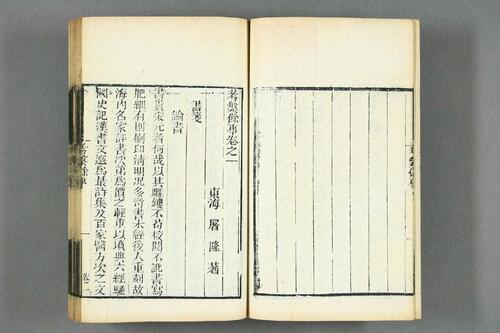 考槃餘事卷之一
東海 屠隆 著
書箋
論書
書貴宋元者何哉以其雕鏤不苟校閱不訛書寫
肥細有則刷印清明况多奇書未經後人重刻故
海内名家評書次第爲價之輕重以墳典六經騷
國史記漢書文選爲最詩集及百家醫方次之文
考槃餘事
卷一